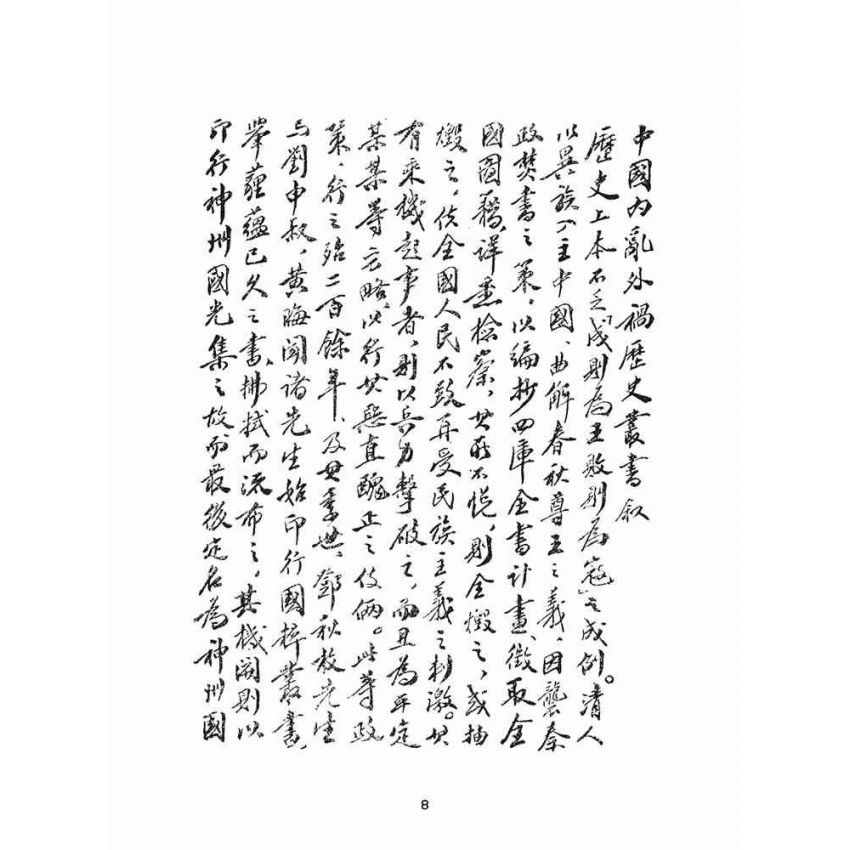 中國內亂外禍歷史叢書叙
歷史上本不乏「成則為王敗則為寇」之成例。清人
以異族入主中國、曲解春秋尊王之義，因襲秦
政焚書之策，以編抄四庫全書計畫、徵取全
國圖籍，詳悉檢察，其所不悅，則全燬之，或抽
燬之，使全國人民不致再受民族主義之刺激。其
有乘機起事者，則以兵力擊破之，而且為平定
某某等方略，以行其惡直醜正之伎倆。此等政
策，行之殆二百餘年，及其季世，鄧秋枚先生
与劉申叔，黃晦聞諸先生始印行國粹叢書，
舉蘊蘊已久之書，拂拭而流布之，其機關則以
印行神州國光集之故而最後定名為神州國
8